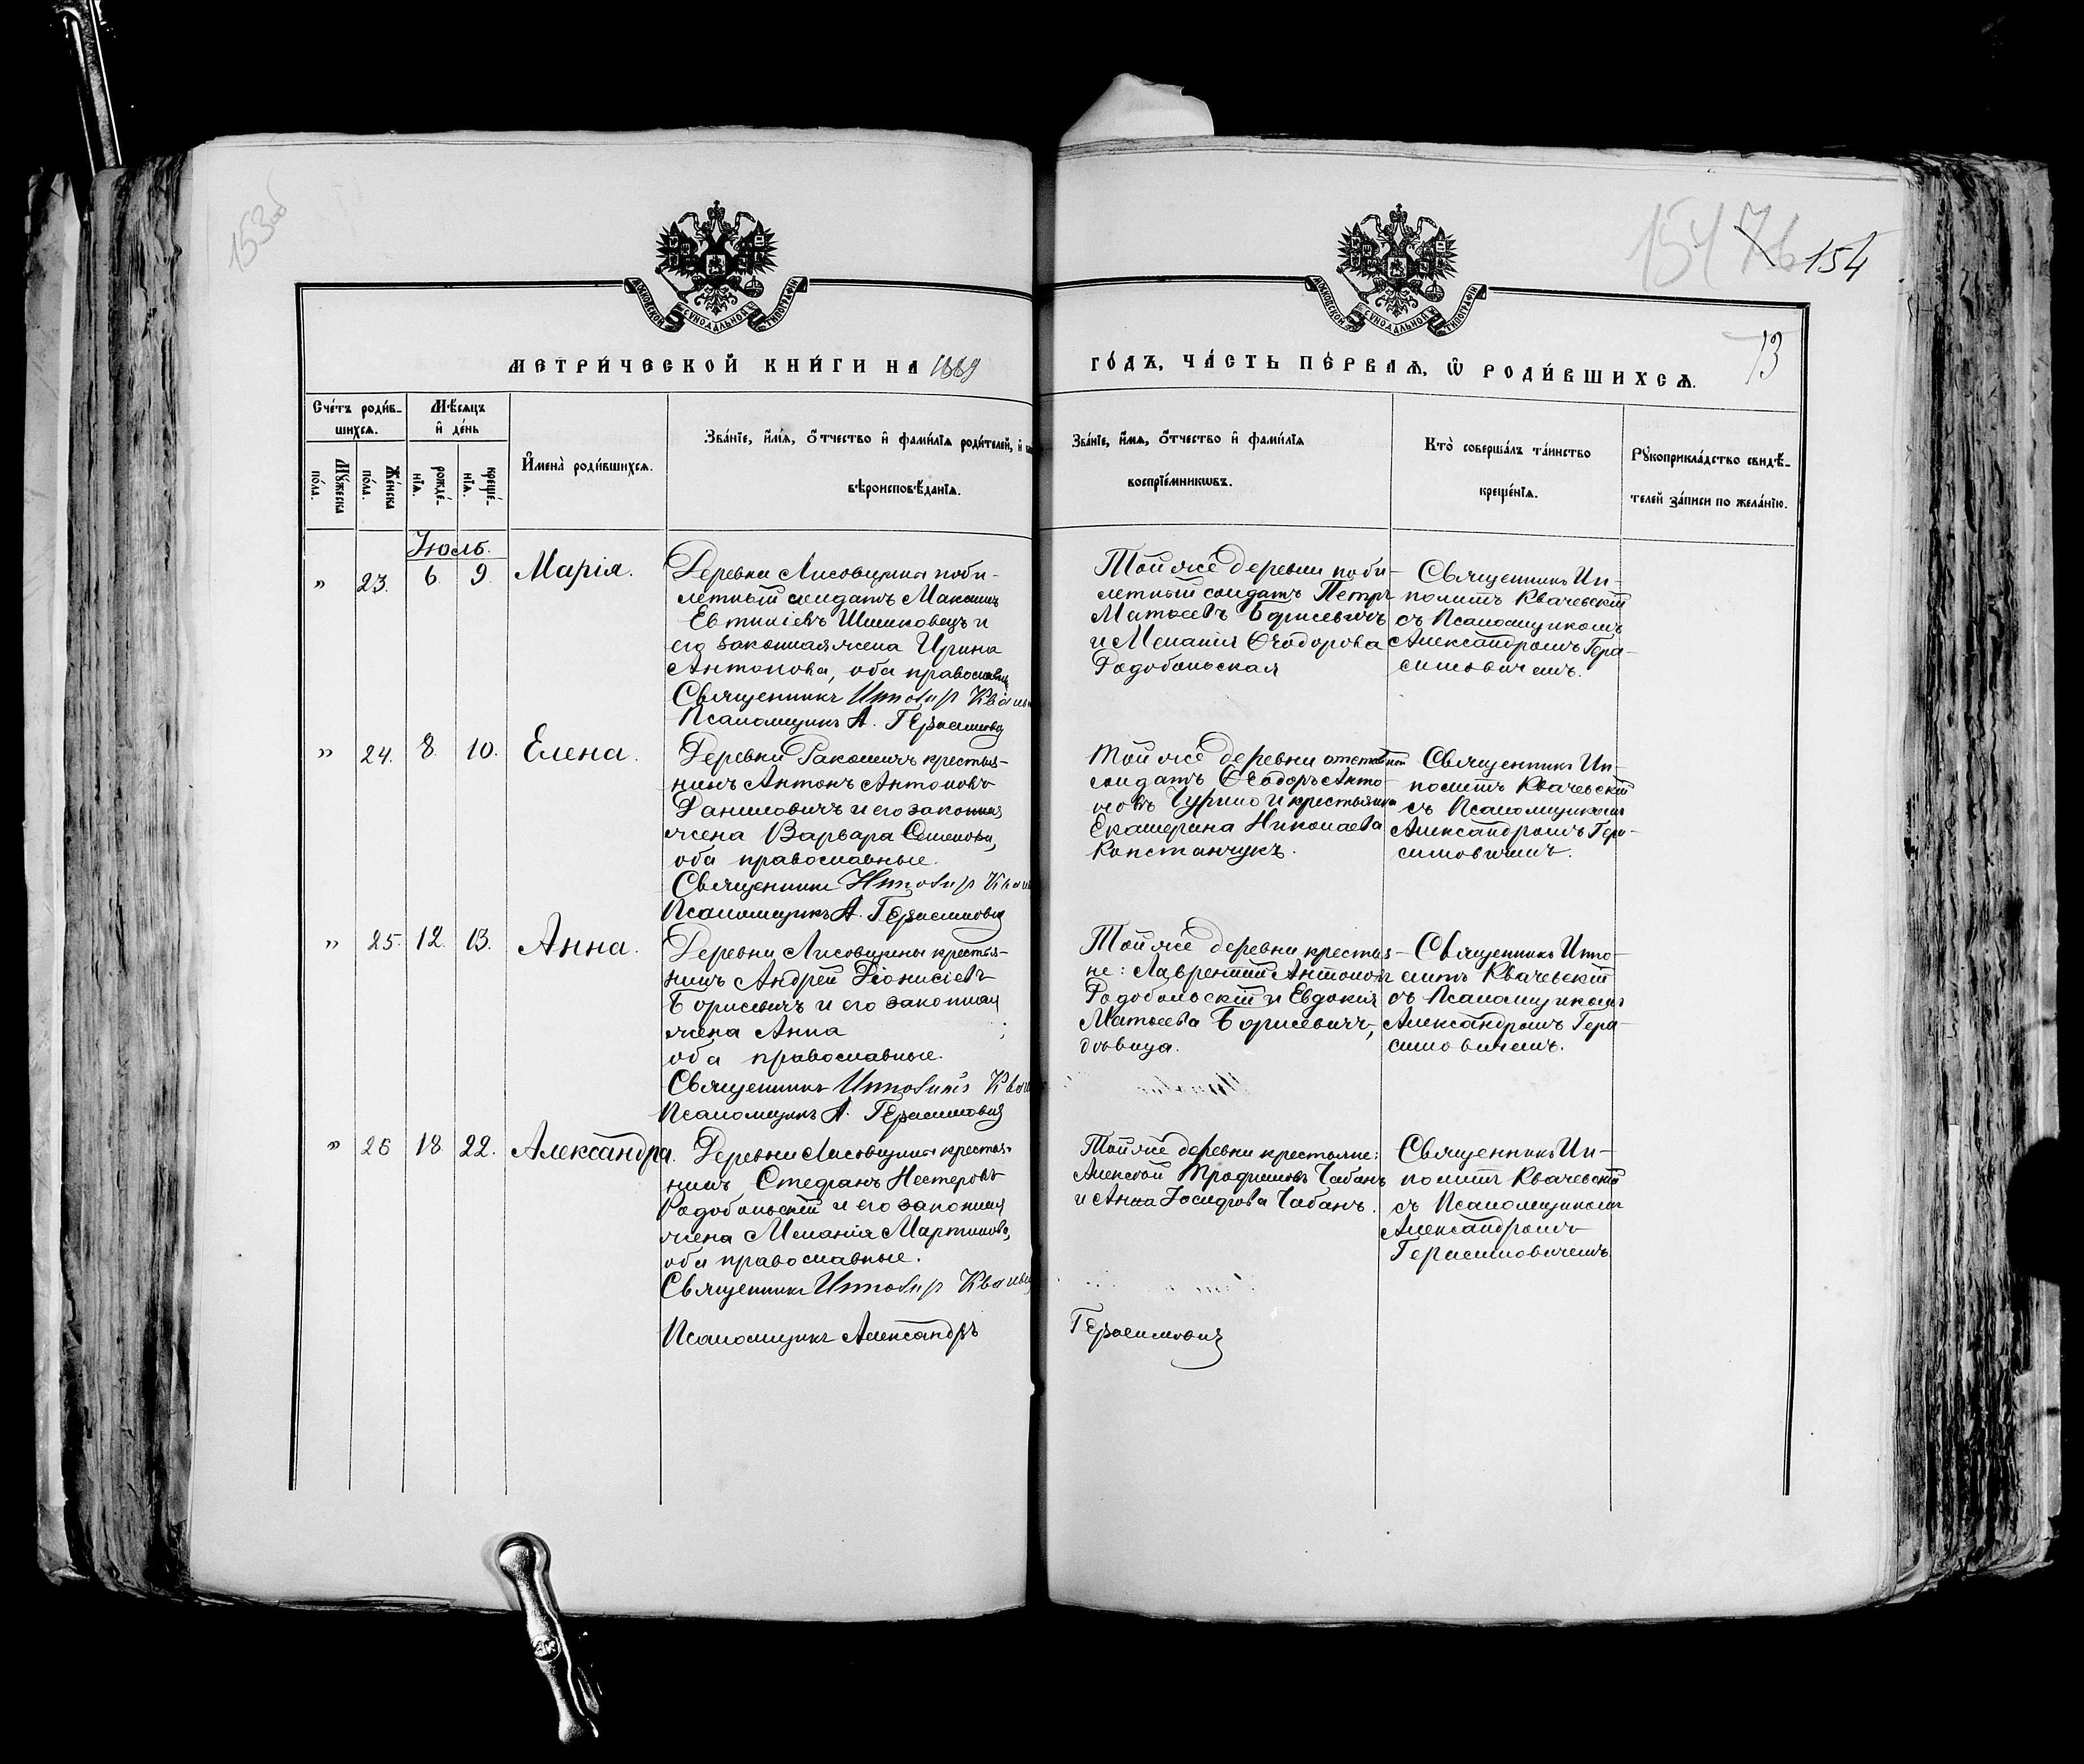 153об
154 76 154
МОСКОВСКОЙ СѴНОДАЛЬНОЙ ТИПОГРАФІИ
МОСКОВСКОЙ СѴНОДАЛЬНОЙ ТИПОГРАФІИ
73
МЕТРИ́ЧЕСКОЙ КНИ́ГИ НА 1889
ГО́ДЪ, ЧА́СТЬ ПЕ́РВАѦ, Ѽ РОДИ́ВШИХСѦ.
Сче́тъ роди́в-
шихсѧ.
Мѣ́сѧцъ
и҆ де́нь
Мꙋ́жеска
по́ла.
Же́нска
по́ла.
рожде́-
нїѧ.
креще́-
нїѧ.
И҆мена̀ роди́вшихсѧ.
Зва́нїе, и҆́мѧ, ѻ҆́тчество и҆ фами́лїѧ роди́телей, и҆
вѣроисповѣ́данїѧ.
Зва́нїе, и҆́мѧ, ѻ҆́тчество и҆ фами́лїѧ
воспрїе́мникѡвъ.
Кто̀ соверша́лъ та́инство
креще́нїѧ.
Рꙋкоприкла́дство свидѣ́-
телей за́писи по жела́нїю.
Іюль.
" 23. 6. 9. Марія.
Деревни Лисовщины поби-
летный солдатъ Максимъ
Евтихіевъ Шишковецъ и
его законная жена Ирина
Антонова, оба православны
Священникъ Ипполитъ Квачев
Псаломщикъ А. Герасимовичъ
Той же деревни поби-
летный солдатъ Петръ
Матѳеевъ Борисевичъ
и Меланія Ѳеодорова
Радобольская
Священникъ Ип-
политъ Квачевскій
съ Псаломщикомъ
Александромъ Гера-
симовичемъ.
" 24. 8. 10. Елена.
Деревни Ракошичъ крестья-
нинъ Антонъ Антоновъ
Даниловичъ и его законная
жена Варвара Семенова,
оба православные.
Священникъ Ипполитъ Квач
Псаломщикъ А. Герасимовичъ
Той же деревни отставной
солдатъ Ѳеодоръ Анто-
новъ Чурило и крестьянка
Екатерина Николаева
Констанчукъ.
Священникъ Ип-
политъ Квачевскій
съ Псаломщикомъ
Александромъ Гера-
симовичемъ.
" 25. 12. 13. Анна.
Деревни Лисовщины крестья-
нинъ Андрей Діонисіевъ
Борисевичъ и его законная
жена Анна
оба православные.
Священникъ Ипполитъ Квач
Псаломщикъ А. Герасимовичъ
Той же деревни крестья-
не: Лаврентій Антоновъ
Радобольскій и Евдокія
Матѳеева Борисевичъ,
дѣвица.
Священникъ Иппо-
литъ Квачевскій
съ Псаломщикомъ
Александромъ Гера-
симовичемъ.
" 26 18 22. Александра.
Деревни Лисовщины крестья-
нинъ Стефанъ Нестеровъ
Радобольскій и его законная
жена Меланія Мартинова,
оба православные.
Священникъ Ипполитъ Квачев
Псаломщикъ Александръ
Герасимовичъ
Той же деревни крестьяне:
Алексѣй Трофимовъ Чабанъ
и Анна Іосифова Чабанъ.
Священникъ Ип-
политъ Квачевскій
съ Псаломщикомъ
Александромъ
Герасимовичемъ.